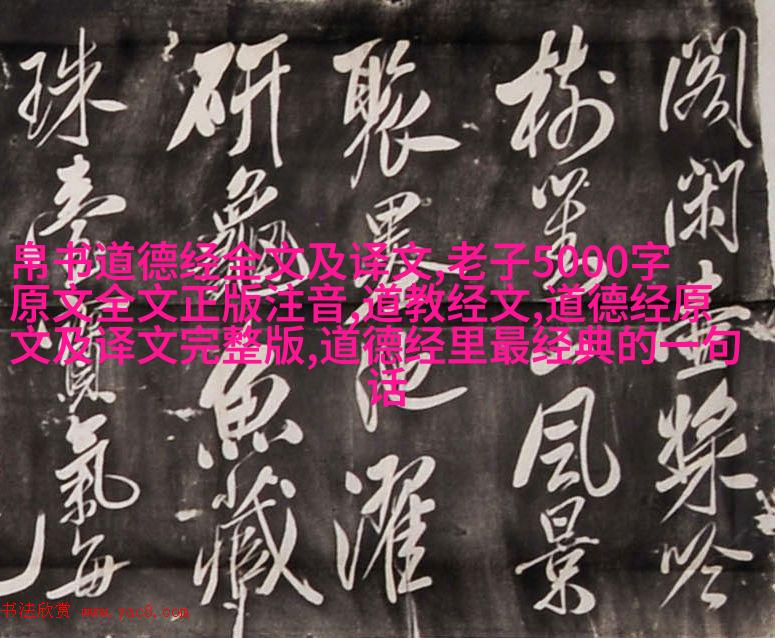 閣閑壺吟
樹風景
聚墨池濯
研魚藏
珠氣每
帛书道德经全文及译文,老子5000字
原文全文正版注音,道教经文,道德经原
文及译文完整版,道德经里最经典的一句
话
书法欣赏 www.yac8.com